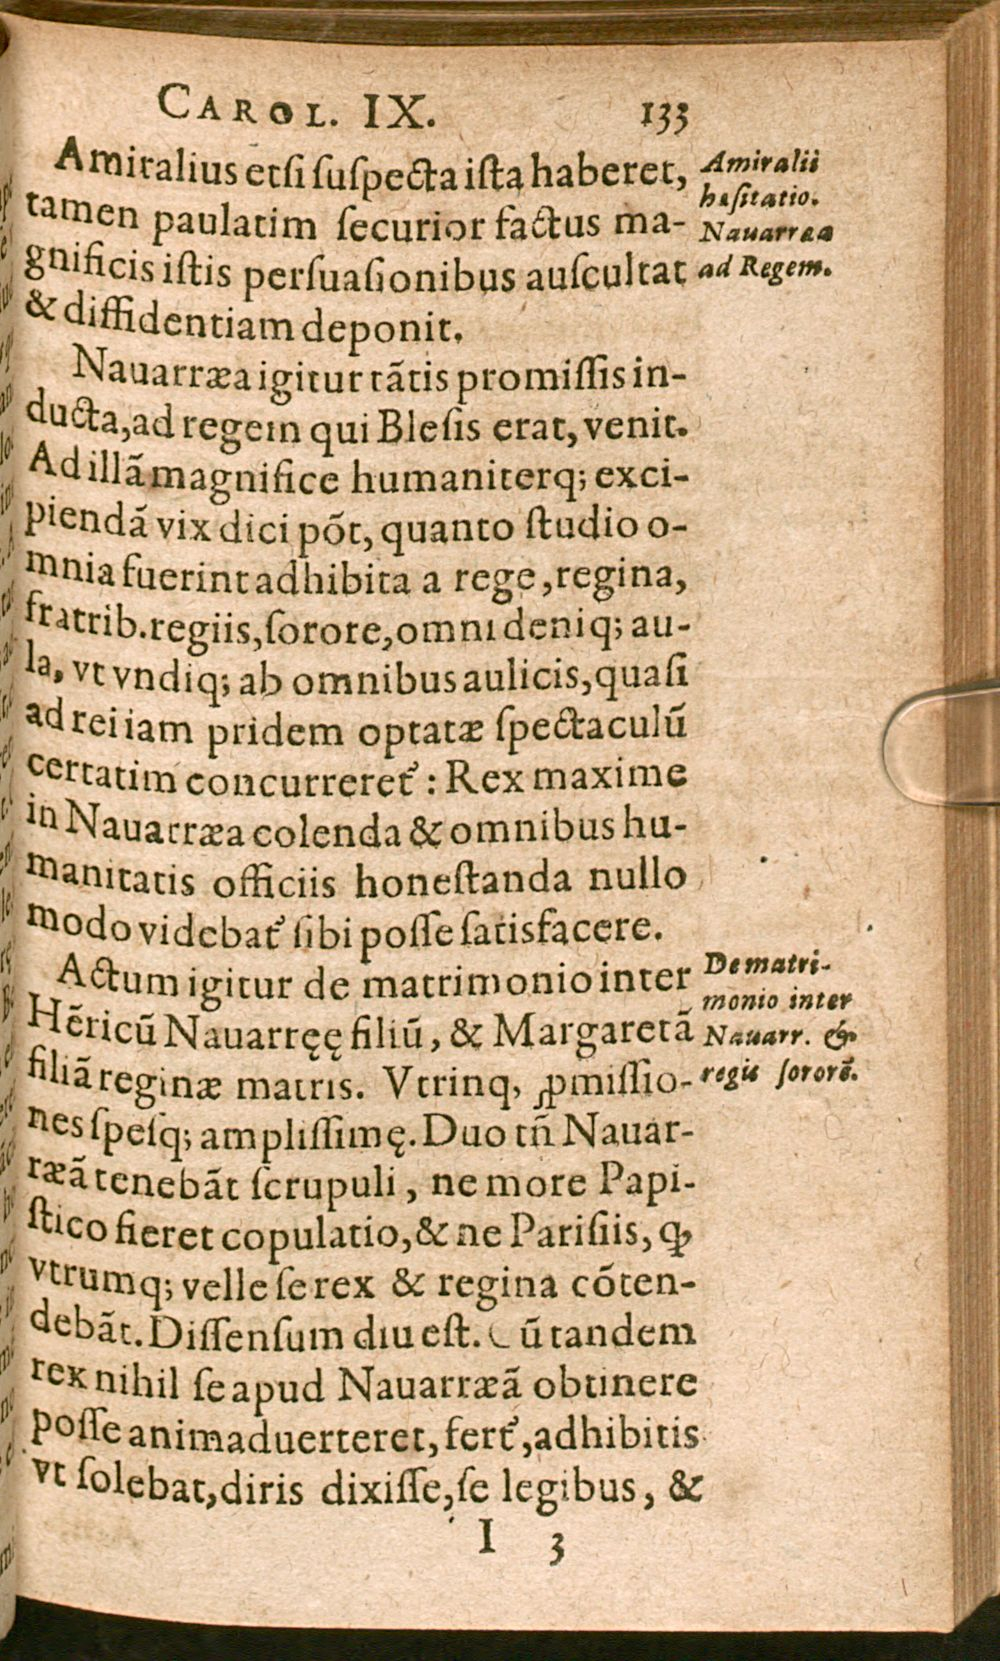 CAROL. IX. 133
Amiralius etsi suspecta ista haberet,
tamen paulatim securior factus ma-
gnificis istis persuasionibus auscultat
& diffidentiam deponit.
Amiralii
hæsitatio.
Nauarræa
ad Regem.
Nauarræa igitur tãtis promissis in-
ducta, ad regem qui Blesis erat, venit.
Ad illã magnifice humaniterq; exci-
piendã vix dici põt, quanto studio o-
mnia fuerint adhibita a rege, regina,
fratrib. regiis, sorore, omni deniq; au-
la, vt vndiq; ab omnibus aulicis, quasi
ad rei iam pridem optatæ spectaculũ
certatim concurreret᷒: Rex maxime
in Nauarræa colenda & omnibus hu-
manitatis officiis honestanda nullo
modo videbat᷒ sibi posse satisfacere.
Actum igitur de matrimonio inter
Hẽricũ Nauarręę filiũ, & Margaretã
filiã reginæ matris. Vtrinq, ꝓmissio-
nes spesq; amplissimę. Duo tñ Nauar-
ræã tenebãt scrupuli, ne more Papi-
stico fieret copulatio, & ne Parisiis, ꝙ
vtrumq; velle se rex & regina cõten-
debãt. Dissensum diu est. Cũ tandem
rex nihil se apud Nauarræã obtinere
posse animaduerteret, fert᷒, adhibitis
vt solebat, diris dixisse, se legibus, &
De matri-
monio inter
Nauarr. &
regis sororẽ.
I 3